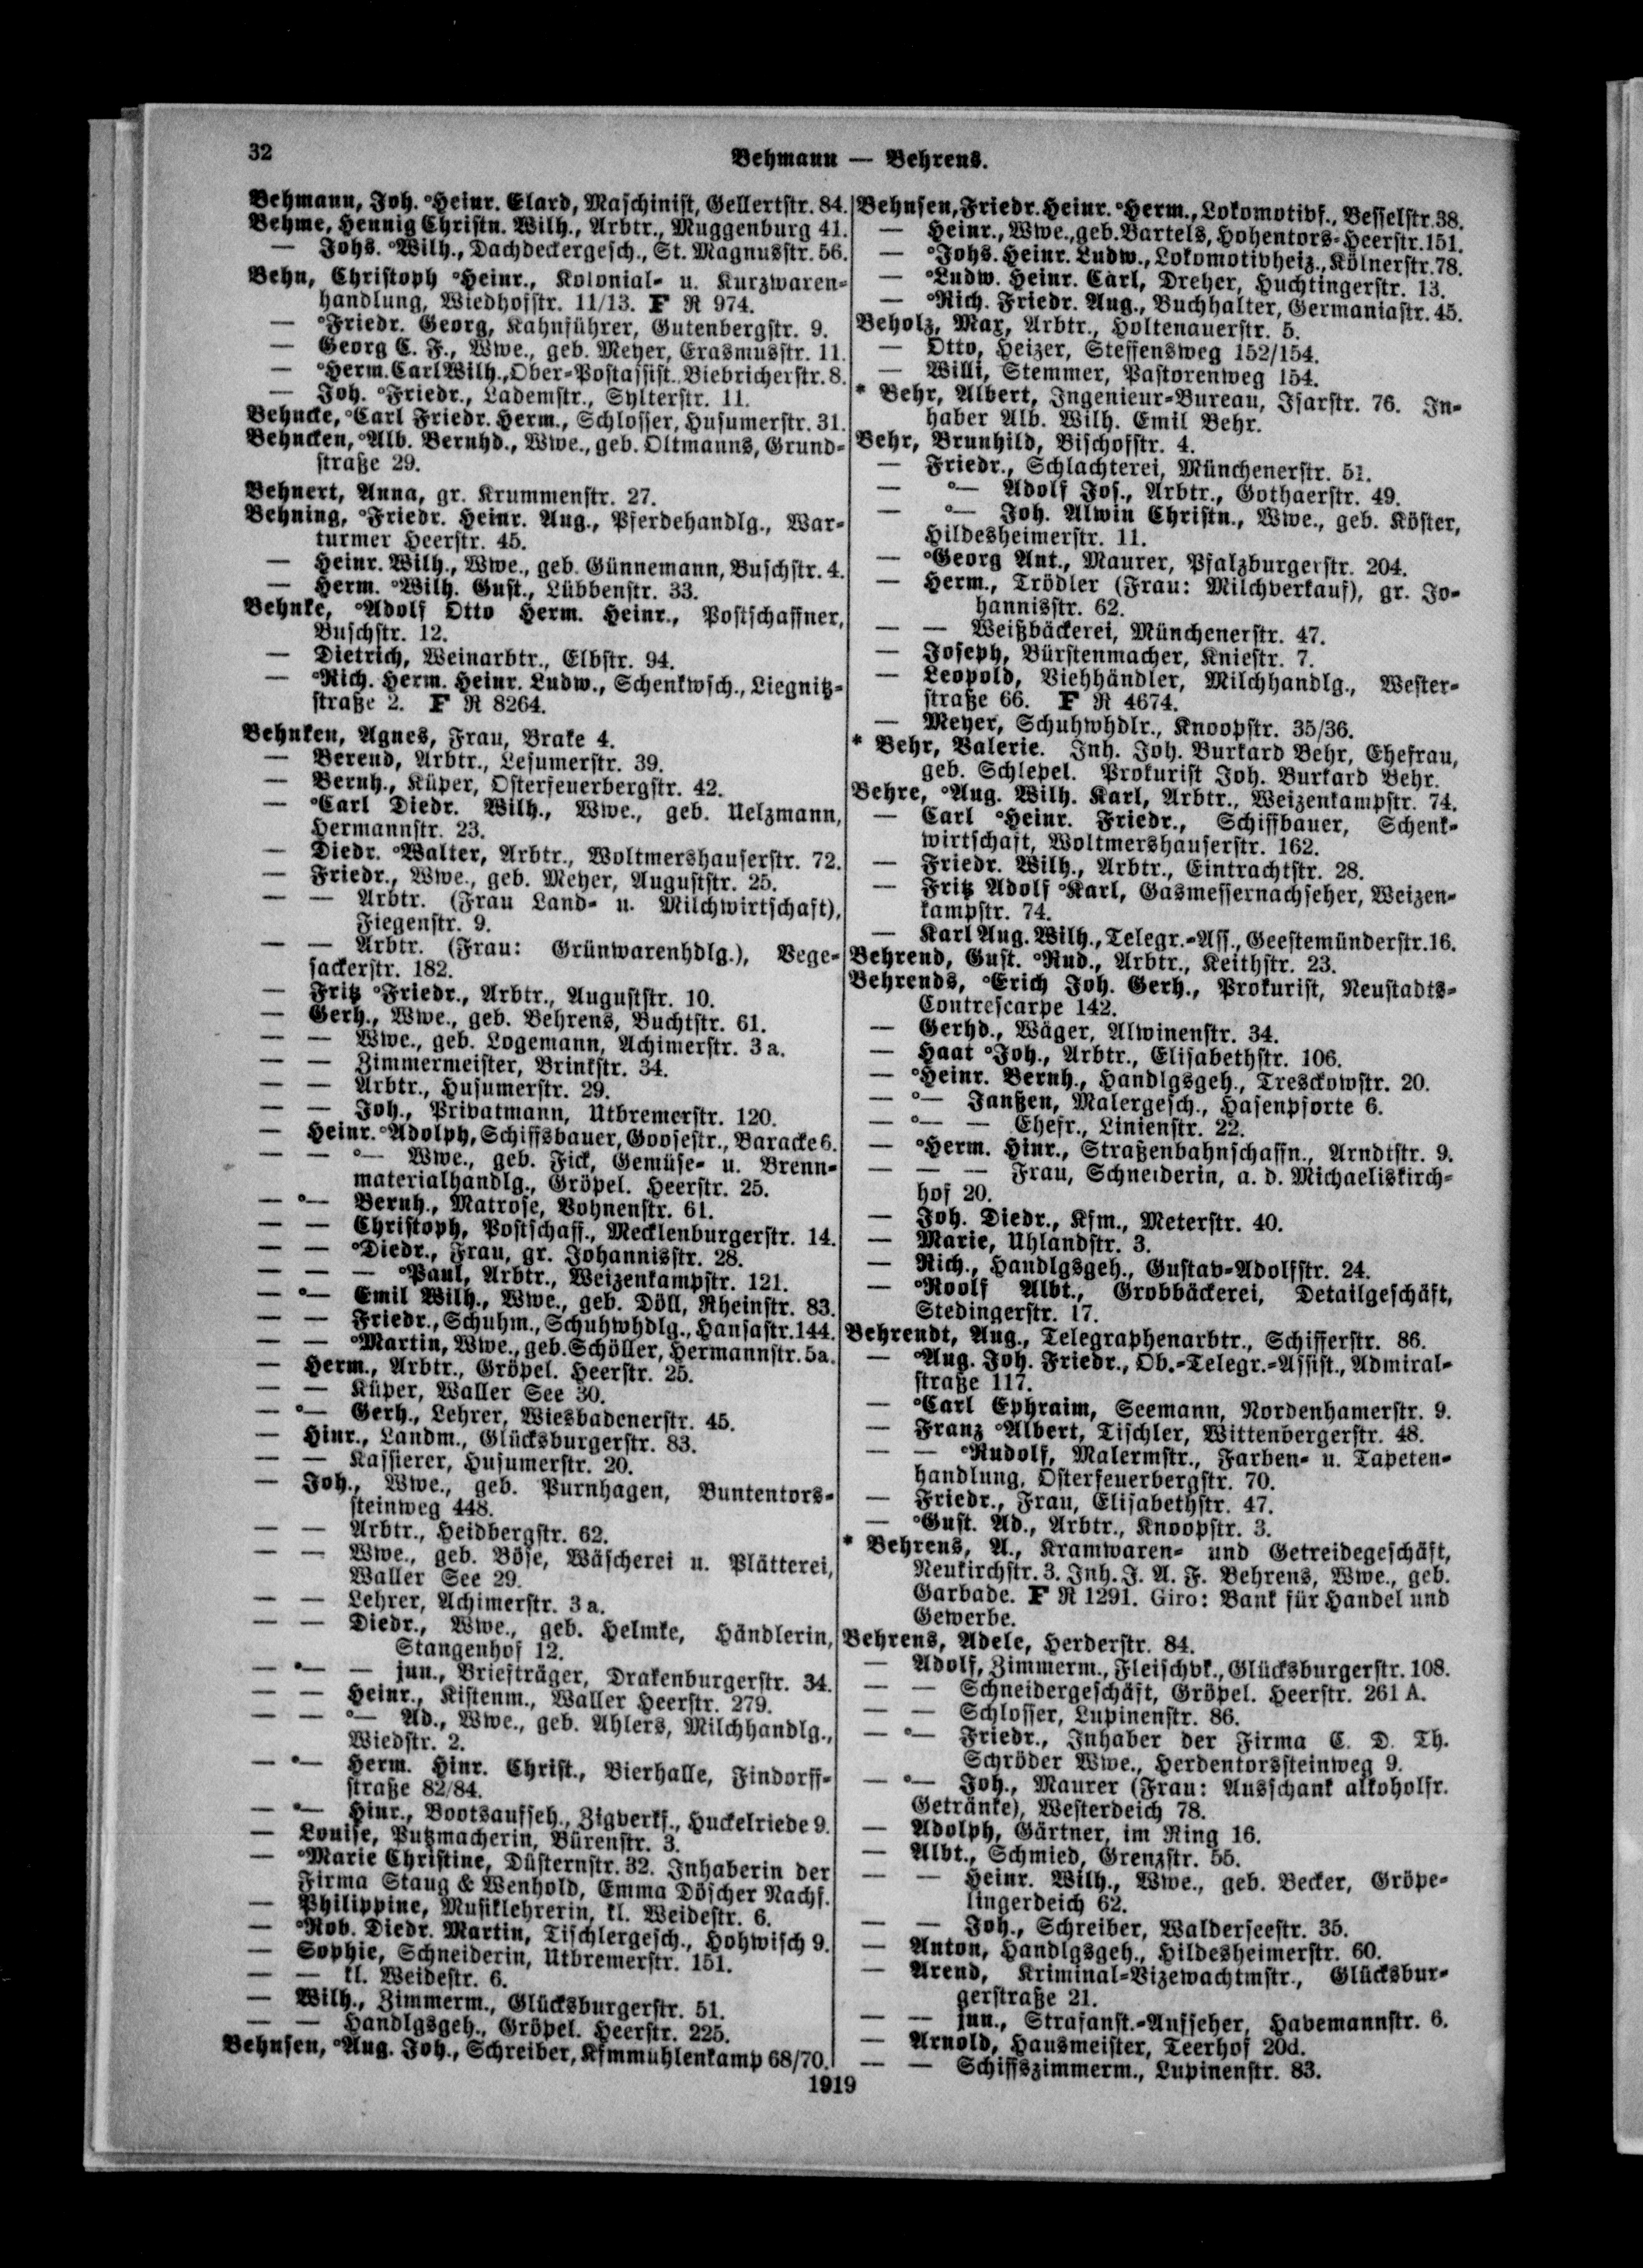 32
Behmann — Behrens.
Behmann, Joh. °Heinr. Elard, Maschinist, Gellertstr. 84.
Behme, Hennig Christn. Wilh., Arbtr., Muggenburg 41.
— Johs. °Wilh., Dachdeckergesch., St. Magnusstr. 56.
Behn, Christoph °Heinr., Kolonial- u. Kurzwaren-
handlung, Wiedhofstr. 11/13. F R 974.
— °Friedr. Georg, Kahnführer, Gutenbergstr. 9.
— Georg C. F., Wwe., geb. Meyer, Erasmusstr. 11.
— °Herm. Carl Wilh., Ober-Postassist., Biebricherstr. 8.
— Joh. °Friedr., Lademstr., Sylterstr. 11.
Behncke, °Carl Friedr. Herm., Schlosser, Husumerstr. 31.
Behncken, °Alb. Bernhd., Wwe., geb. Oltmanns, Grund-
straße 29.
Behnert, Anna, gr. Krummenstr. 27.
Behning, °Friedr. Heinr. Aug., Pferdehandlg., War-
turmer Heerstr. 45.
— Heinr. Wilh., Wwe., geb. Günnemann, Buschstr. 4.
— Herm. °Wilh. Gust., Lübbenstr. 33.
Behnke, °Adolf Otto Herm. Heinr., Postschaffner,
Buschstr. 12.
— Dietrich, Weinarbtr., Elbstr. 94.
— °Rich. Herm. Heinr. Ludw., Schenkwsch., Liegnitz-
straße 2. F R 8264.
Behnken, Agnes, Frau, Brake 4.
— Berend, Arbtr., Lesumerstr. 39.
— Bernh., Küper, Osterfeuerbergstr. 42.
— °Carl Diedr. Wilh., Wwe., geb. Uelzmann,
Hermannstr. 23.
— Diedr. °Walter, Arbtr., Woltmershauserstr. 72.
— Friedr., Wwe., geb. Meyer, Auguststr. 25.
— — Arbtr. (Frau Land- u. Milchwirtschaft),
Fiegenstr. 9.
— — Arbtr. (Frau: Grünwarenhdlg.), Vege-
sackerstr. 182.
— Fritz °Friedr., Arbtr., Auguststr. 10.
— Gerh., Wwe., geb. Behrens, Buchtstr. 61.
— — Wwe., geb. Logemann, Achimerstr. 3 a.
— — Zimmermeister, Brinkstr. 34.
— — Arbtr., Husumerstr. 29.
— — Joh., Privatmann, Utbremerstr. 120.
— Heinr. °Adolph, Schiffsbauer, Goosestr., Baracke 6.
— — °— Wwe., geb. Fick, Gemüse- u. Brenn-
materialhandlg., Gröpel. Heerstr. 25.
— °— Bernh., Matrose, Bohnenstr. 61.
— — Christoph, Postschaff., Mecklenburgerstr. 14.
— — °Diedr., Frau, gr. Johannisstr. 28.
— — — °Paul, Arbtr., Weizenkampstr. 121.
— °— Emil Wilh., Wwe., geb. Döll, Rheinstr. 83.
— — Friedr., Schuhm., Schuhwhdlg., Hansastr. 144.
— — °Martin, Wwe., geb. Schöller, Hermannstr. 5a.
— Herm., Arbtr., Gröpel. Heerstr. 25.
— — Küper, Waller See 30.
— °— Gerh., Lehrer, Wiesbadenerstr. 45.
— Hinr., Landm., Glücksburgerstr. 83.
— — Kassierer, Husumerstr. 20.
— Joh., Wwe., geb. Purnhagen, Buntentors-
steinweg 448.
— — Arbtr., Heidbergstr. 62.
— — Wwe., geb. Böse, Wäscherei u. Plätterei,
Waller See 29.
— — Lehrer, Achimerstr. 3 a.
— — Diedr., Wwe., geb. Helmke, Händlerin,
Stangenhof 12.
— °— — jun., Briefträger, Drakenburgerstr. 34.
— — Heinr., Kistenm., Waller Heerstr. 279.
— — °— Ad., Wwe., geb. Ahlers, Milchhandlg.,
Wiedstr. 2.
— °— Herm. Hinr. Christ., Bierhalle, Findorff-
straße 82/84.
— °— Hinr., Bootsaufseh., Zigverkf., Huckelriede 9.
— Louise, Putzmacherin, Bürenstr. 3.
— °Marie Christine, Düsternstr. 32. Inhaberin der
Firma Staug & Wenhold, Emma Döscher Nachf.
— Philippine, Musiklehrerin, kl. Weidestr. 6.
— °Rob. Diedr. Martin, Tischlergesch., Hohwisch 9.
— Sophie, Schneiderin, Utbremerstr. 151.
— — kl. Weidestr. 6.
— Wilh., Zimmerm., Glücksburgerstr. 51.
— — Handlgsgeh., Gröpel. Heerstr. 225.
Behnsen, °Aug. Joh., Schreiber, Kfmmühlenkamp 68/70.
Behnsen, Friedr. Heinr. °Herm., Lokomotivf., Besselstr. 38.
— Heinr., Wwe., geb. Bartels, Hohentors-Heerstr. 151.
— °Johs. Heinr. Ludw., Lokomotivheiz., Kölnerstr. 78.
— °Ludw. Heinr. Carl, Dreher, Huchtingerstr. 13.
— °Rich. Friedr. Aug., Buchhalter, Germaniastr. 45.
Beholz, Max, Arbtr., Holtenauerstr. 5.
— Otto, Heizer, Steffensweg 152/154.
— Willi, Stemmer, Pastorenweg 154.
* Behr, Albert, Ingenieur-Bureau, Isarstr. 76. In-
haber Alb. Wilh. Emil Behr.
Behr, Brunhild, Bischofstr. 4.
— Friedr., Schlachterei, Münchenerstr. 51.
— °— Adolf Jos., Arbtr., Gothaerstr. 49.
— °— Joh. Alwin Christn., Wwe., geb. Köster,
Hildesheimerstr. 11.
— °Georg Ant., Maurer, Pfalzburgerstr. 204.
— Herm., Trödler (Frau: Milchverkauf), gr. Jo-
hannisstr. 62.
— — Weißbäckerei, Münchenerstr. 47.
— Joseph, Bürstenmacher, Kniestr. 7.
— Leopold, Viehhändler, Milchhandlg., Wester-
straße 66. F R 4674.
— Meyer, Schuhwhdlr., Knoopstr. 35/36.
* Behr, Valerie. Inh. Joh. Burkard Behr, Ehefrau,
geb. Schlepel. Prokurist Joh. Burkard Behr.
Behre, °Aug. Wilh. Karl, Arbtr., Weizenkampstr. 74.
— Carl °Heinr. Friedr., Schiffbauer, Schenk-
wirtschaft, Woltmershauserstr. 162.
— Friedr. Wilh., Arbtr., Eintrachtstr. 28.
— Fritz Adolf °Karl, Gasmessernachseher, Weizen-
kampstr. 74.
— Karl Aug. Wilh., Telegr.-Ass., Geestemünderstr. 16.
Behrend, Gust. °Rud., Arbtr., Keithstr. 23.
Behrends, °Erich Joh. Gerh., Prokurist, Neustadts-
Contrescarpe 142.
— Gerhd., Wäger, Alwinenstr. 34.
— Haat °Joh., Arbtr., Elisabethstr. 106.
— °Heinr. Bernh., Handlgsgeh., Tresckowstr. 20.
— °— Janßen, Malergesch., Hasenpforte 6.
— °— — Ehefr., Linienstr. 22.
— °Herm. Hinr., Straßenbahnschaffn., Arndtstr. 9.
— — — Frau, Schneiderin, a. d. Michaeliskirch-
hof 20.
— Joh. Diedr., Kfm., Meterstr. 40.
— Marie, Uhlandstr. 3.
— Rich., Handlgsgeh., Gustav-Adolfstr. 24.
— °Roolf Albt., Grobbäckerei, Detailgeschäft,
Stedingerstr. 17.
Behrendt, Aug., Telegraphenarbtr., Schifferstr. 86.
— °Aug. Joh. Friedr., Ob.-Telegr.-Assist., Admiral-
straße 117.
— °Carl Ephraim, Seemann, Nordenhamerstr. 9.
— Franz °Albert, Tischler, Wittenbergerstr. 48.
— — °Rudolf, Malermstr., Farben- u. Tapeten-
handlung, Osterfeuerbergstr. 70.
— Friedr., Frau, Elisabethstr. 47.
— °Gust. Ad., Arbtr., Knoopstr. 3.
* Behrens, A., Kramwaren- und Getreidegeschäft,
Neukirchstr. 3. Inh. J. A. F. Behrens, Wwe., geb.
Garbade. F R 1291. Giro: Bank für Handel und
Gewerbe.
Behrens, Adele, Herderstr. 84.
— Adolf, Zimmerm., Fleischvk., Glücksburgerstr. 108.
— — Schneidergeschäft, Gröpel. Heerstr. 261 A.
— — Schlosser, Lupinenstr. 86.
— °— Friedr., Inhaber der Firma C. D. Th.
Schröder Wwe., Herdentorssteinweg 9.
— °— Joh., Maurer (Frau: Ausschank alkoholfr.
Getränke), Westerdeich 78.
— Adolph, Gärtner, im Ring 16.
— Albt., Schmied, Grenzstr. 55.
— — Heinr. Wilh., Wwe., geb. Becker, Gröpe-
lingerdeich 62.
— — Joh., Schreiber, Walderseestr. 35.
— Anton, Handlgsgeh., Hildesheimerstr. 60.
— Arend, Kriminal-Vizewachtmstr., Glücksbur-
gerstraße 21.
— — jun., Strafanst.-Aufseher, Habemannstr. 6.
— Arnold, Hausmeister, Teerhof 20d.
— — Schiffszimmerm., Lupinenstr. 83.
1919